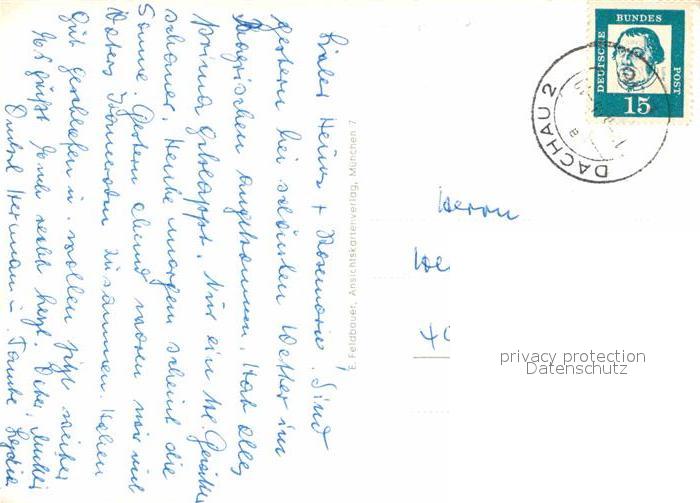 Liebe Heinz + Rosemarie! Sind
gestern bei schönsten Wetter im
angekommen. Hat alles
prima geklappt. Nur ein kl. Gewitter
schauer. Heute morgen scheint die
Sonne. Gestern abend waren wir mit
Vaters Kameraden zusammen. Haben
gut geschlafen u. wollen jetzt weiter.
Es grüßt Euch recht herzl. Eure Mutti
Onkel Hermann u. Tante Lydia
E. Feldbauer, Ansichtskartenverlag, München 7
DEUTSCHE BUNDES POST
15
DACHAU 2
a
Herrn
privacy protection
Datenschutz